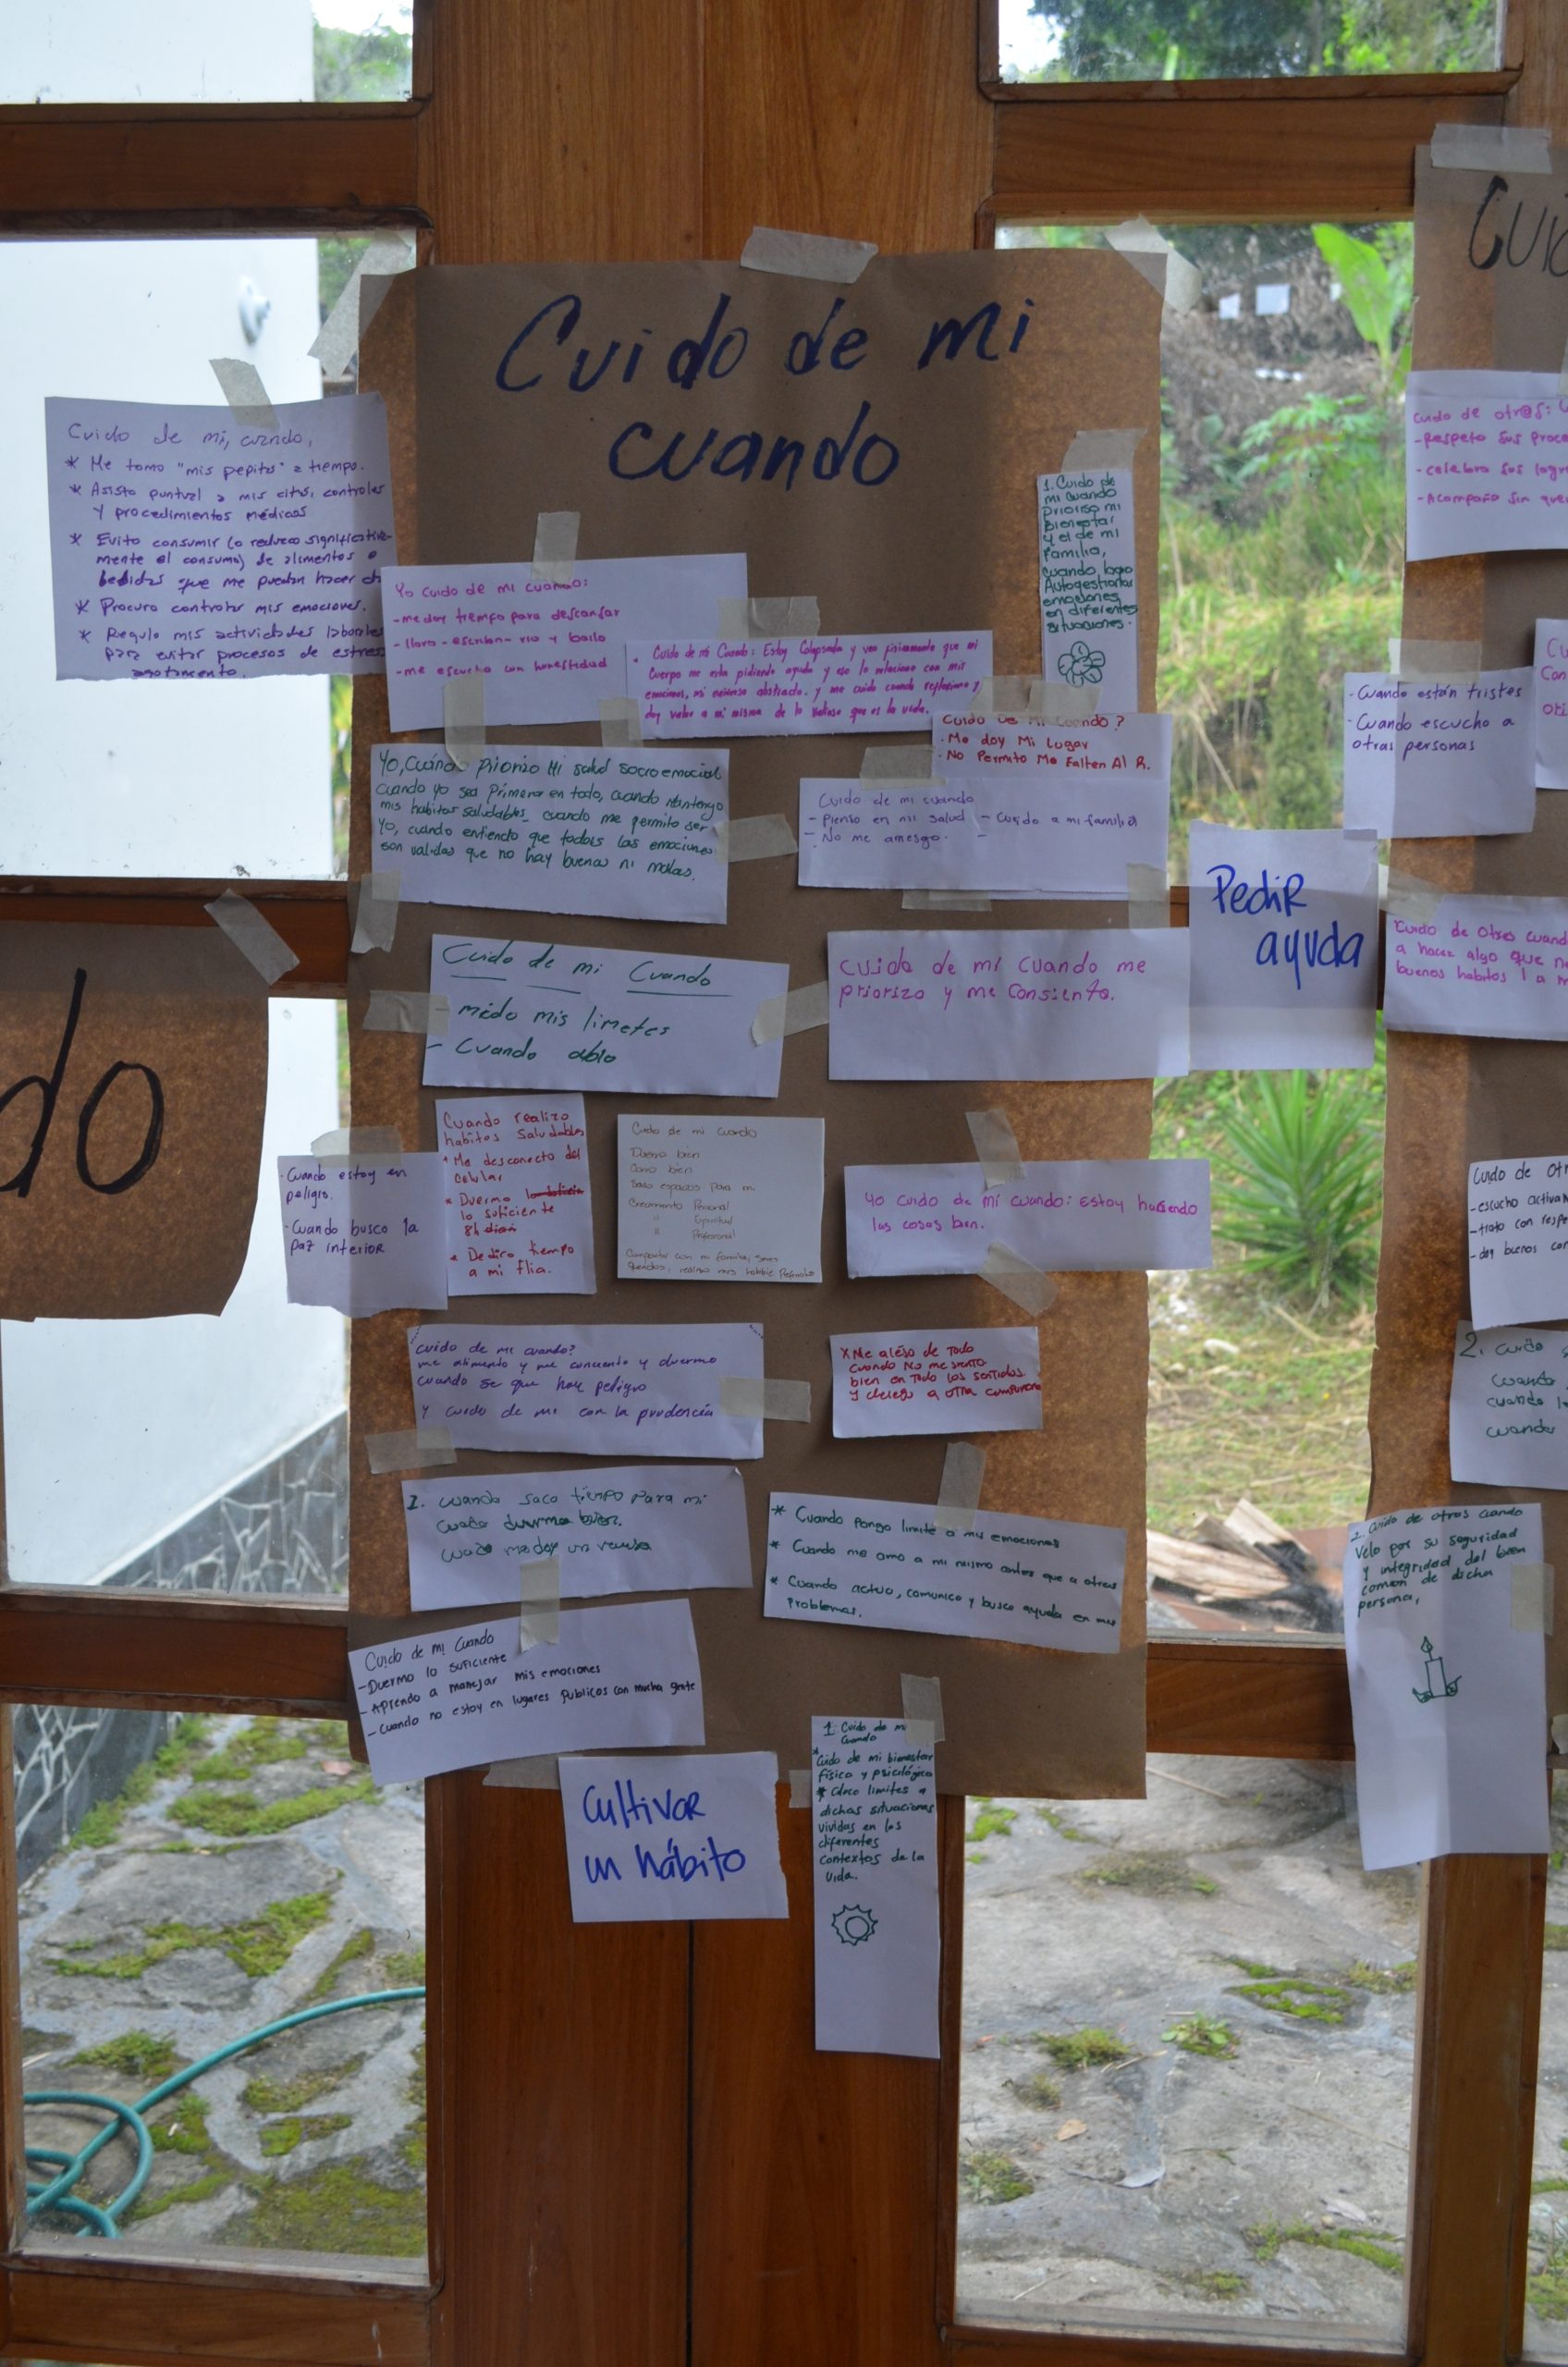 Cuido de mi
cuando
Cuido de mi, cuando,
* Me tomo "mis pepitas" a tiempo.
* Asisto puntual a mis citas, controles
y procedimientos médicos
* Evito consumir (o reduzco significativa-
mente el consumo) de alimentos o
bebidas que me puedan hacer
* Procuro controlar mis emociones.
* Regulo mis actividades laborales
para evitar procesos de estres
agotamiento.
Yo cuido de mi cuando:
- me doy tiempo para descansar
- lloro - escribo - rio y bailo
- me escucho con honestidad
1. Cuido de
mi cuando
priorizo mi
bienestar
y el de mi
familia,
cuando logro
Autogestionar
emociones
en diferentes
situaciones.
Cuido de mi Cuando: Estoy Colapsada y veo fisicamente que mi
Cuerpo me esta pidiendo ayuda y eso lo relaciono con mis
emociones, mi abstracto. y me cuido cuando reflexiono y
doy valor a mi misma de lo valioso que es la vida.
Cuido De Mi Cuando?
. Me doy Mi Lugar
. No Permito Me Falten Al R.
Yo, Cuando priorizo Mi salud socioemocial
cuando yo sea primera en todo, cuando mantengo
mis habitos saludables, cuando me permito ser
Yo, cuando entiendo que todas las emociones
son validas que no hay buenas ni malas.
Cuido de mi cuando
- Pienso en mi salud - Cuido a mi familia
- No me arriesgo. -
Pedir
ayuda
Cuido de mi Cuando
- mido mis limetes
- Cuando ablo
Cuido de mi cuando me
priorizo y me Consiento.
. Cuando estoy en
peligro.
. Cuando busco la
paz interior
Cuando realizo
habitos saludables
* Me desconecto del
celular
* Duermo
lo suficiente
8h
* Dedico tiempo
a mi flia.
Cuido de mi cuando
Duermo bien
Como bien
Saco espacios para mi
Crecimiento Personal
" Espiritual
" Profesional
Compartir con mi familia, seres
queridos, realizo mis hobbie
Yo cuido de mi cuando: Estoy haciendo
las cosas bien.
cuido de mi cuando?
me alimento y me consiento y duermo
cuando se que hay peligro
Y cuido de mi con la prudencia
X Me alejo de Todo
cuando No me siento
bien en Todo los sentidos
Y delego a otra
1. cuando saco tiempo para mi
cuando duermo bien.
cuando me doy un
* Cuando pongo limite a mis emociones
* Cuando me amo a mi mismo antes que a otros
* Cuando actuo, comunico y busco ayuda en mis
problemas.
Cuido de mi Cuando
- Duermo lo suficiente
- Aprendo a manejar mis emociones
- Cuando no estoy en lugares publicos con mucha gente
Cultivar
un hábito
1. Cuido de mi
Cuando
* Cuido de mi bienestar
físico y psicológico
* limites a
dichas situaciones
vividas en los
diferentes
contextos de la
vida.
do
Cuido de otr@s:
- Respeto sus
- celebro sus
- Acompaño sin
- Cuando están tristes
- Cuando escucho a
otras personas
Cuido de Otros cuando
a hacer algo que
buenos habitos
- escucho
- trato con
- doy buenos
2. cuido
cuando
cuando
cuando
2. Cuido de otros cuando
Velo por su seguridad
y integridad del bien
comun de dicha
persona,